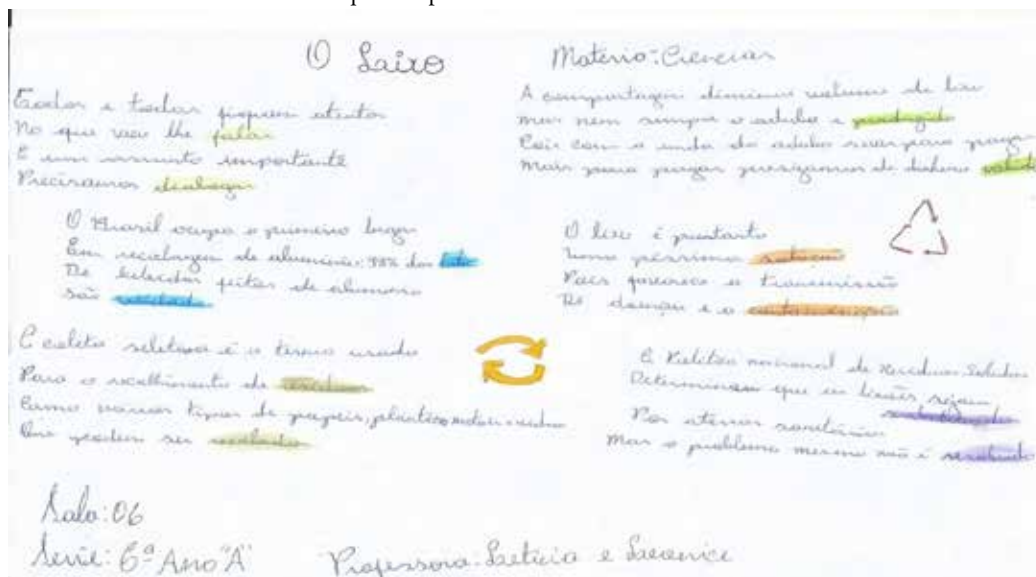 O Laixo
Materia: Ciencias
Todos e todas fiquem atentos
No que vou lhe falar
É um assunto importante
Precisamos dialogar
O Brasil ocupa o primeiro lugar
Em reciclagem de aluminio: 98% das latas
De bebidas feitas de
são
A coleta seletiva é o termo usado
Para o recolhimento de residuos
Como varios tipos de papeis, plastico, metais e vidros
Que podem ser
A compostagem diminui volume de lixo
mas nem sempre o adubo é produzido
Pois com a venda do adubo
Mais para pagar precisamos de dinheiro
O lixo é portanto
Uma péssima
Pois favorece a transmissão
De doenças e a contaminação
A Politica nacional de Residuos Solidos
Determinam que os lixões sejam
substituidos
Por aterros sanitários
Mas o problema mesmo não é resolvido
Sala: 06
Serie: 6º Ano "A"
Professora: Leticia e